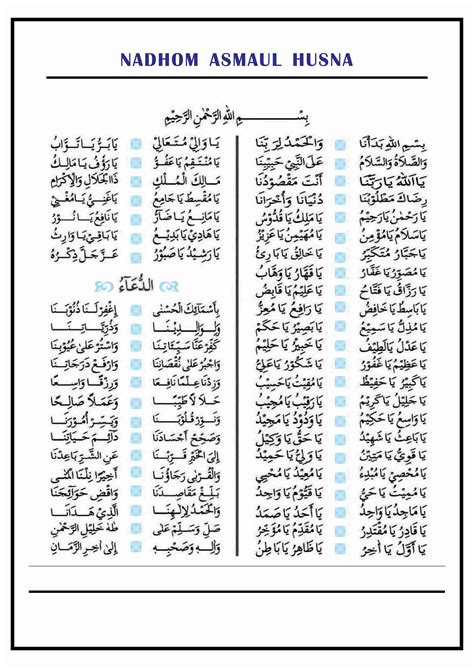 NADHOM ASMAUL HUSNA
بِسْمِ اللهِ الرَّحْمٰنِ الرَّحِيْمِ
بِسْمِ اللهِ بَدَأْنَا وَالْحَمْدُ لِرَبِّنَا
وَالصَّلَاةُ وَالسَّلَامُ عَلَى النَّبِيِّ حَبِيْبِنَا
يَا اَللهُ يَا رَبَّنَا أَنْتَ مَقْصُوْدُنَا
رِضَاكَ مَطْلُوْبُنَا دُنْيَانَا وَأُخْرَانَا
يَا رَحْمٰنُ يَا رَحِيْمُ يَا مَلِكُ يَا قُدُّوْسُ
يَا سَلَامُ يَا مُؤْمِنُ يَا مُهَيْمِنُ يَا عَزِيْزُ
يَا جَبَّارُ يَا مُتَكَبِّرُ يَا خَالِقُ يَا بَارِئُ
يَا مُصَوِّرُ يَا غَفَّارُ يَا قَهَّارُ يَا وَهَّابُ
يَا رَزَّاقُ يَا فَتَّاحُ يَا عَلِيْمُ يَا قَابِضُ
يَا بَاسِطُ يَا خَافِضُ يَا رَافِعُ يَا مُعِزُّ
يَا مُذِلُّ يَا سَمِيْعُ يَا بَصِيْرُ يَا حَكَمُ
يَا عَدْلُ يَا لَطِيْفُ يَا خَبِيْرُ يَا حَلِيْمُ
يَا عَظِيْمُ يَا غَفُوْرُ يَا شَكُوْرُ يَا عَلِيُّ
يَا كَبِيْرُ يَا حَفِيْظُ يَا مُقِيْتُ يَا حَسِيْبُ
يَا جَلِيْلُ يَا كَرِيْمُ يَا رَقِيْبُ يَا مُجِيْبُ
يَا وَاسِعُ يَا حَكِيْمُ يَا وَدُوْدُ يَا مَجِيْدُ
يَا بَاعِثُ يَا شَهِيْدُ يَا حَقُّ يَا وَكِيْلُ
يَا قَوِيُّ يَا مَتِيْنُ يَا وَلِيُّ يَا حَمِيْدُ
يَا مُحْصِيْ يَا مُبْدِئُ يَا مُعِيْدُ يَا مُحْيِيْ
يَا مُمِيْتُ يَا حَيُّ يَا قَيُّوْمُ يَا وَاجِدُ
يَا مَاجِدُ يَا وَاحِدُ يَا أَحَدُ يَا صَمَدُ
يَا قَادِرُ يَا مُقْتَدِرُ يَا مُقَدِّمُ يَا مُؤَخِّرُ
يَا أَوَّلُ يَا اٰخِرُ يَا ظَاهِرُ يَا بَاطِنُ
يَا وَالِيْ يَا مُتَعَالِيْ يَا بَرُّ يَا تَوَّابُ
يَا مُنْتَقِمُ يَا عَفُوُّ يَا رَؤُفُ يَا مَالِكُ
مَالِكَ الْمُلْكِ ذَاالْجَلَالِ وَالْإِكْرَامِ
يَا مُقْسِطُ يَا جَامِعُ يَا غَنِيُّ يَا مُغْنِيْ
يَا مَانِعُ يَا ضَآرُّ يَا نَافِعُ يَا نُوْرُ
يَا هَادِيْ يَا بَدِيْعُ يَا بَاقِيْ يَا وَارِثُ
يَا رَشِيْدُ يَا صَبُوْرُ عَزَّ جَلَّ ذِكْرُهُ
الدُّعَآءُ
بِأَسْمَآئِكَ الْحُسْنٰى إِغْفِرْ لَنَا ذُنُوْبَنَا
وَلِوَالِدِيْنَا وَذُرِّيَّتِنَا
كَفِّرْ عَنْ سَيِّئَاتِنَا وَاسْتُرْ عَلٰى عُيُوْبِنَا
وَاجْبُرْ عَلٰى نُقْصَانِنَا وَارْفَعْ دَرَجَاتِنَا
وَزِدْنَا عِلْمًا نَافِعًا وَرِزْقًا وَاسِعًا
حَلَالًا طَيِّبًا وَعَمَلًا صَالِحًا
وَنَوِّرْ قُلُوْبَنَا وَيَسِّرْ أُمُوْرَنَا
وَصَحِّحْ أَجْسَادَنَا دَآئِمَ حَيَاتِنَا
إِلَى الْخَيْرِ قَرِّبْنَا عَنِ الشَّرِّ بَاعِدْنَا
وَالْقُرْبٰى رَجَاؤُنَا أَخِيْرًا نِلْنَا الْمُنٰى
بَلِّغْ مَقَاصِدَنَا وَاقْضِ حَوَآئِجَنَا
وَالْحَمْدُ لِإِلٰهِنَا
صَلِّ وَسَلِّمْ عَلٰى طٰهَ خَلِيْلِ الرَّحْمٰنِ
وَاٰلِهِ وَصَحْبِهِ إِلٰى اٰخِرِ الزَّمَانِ